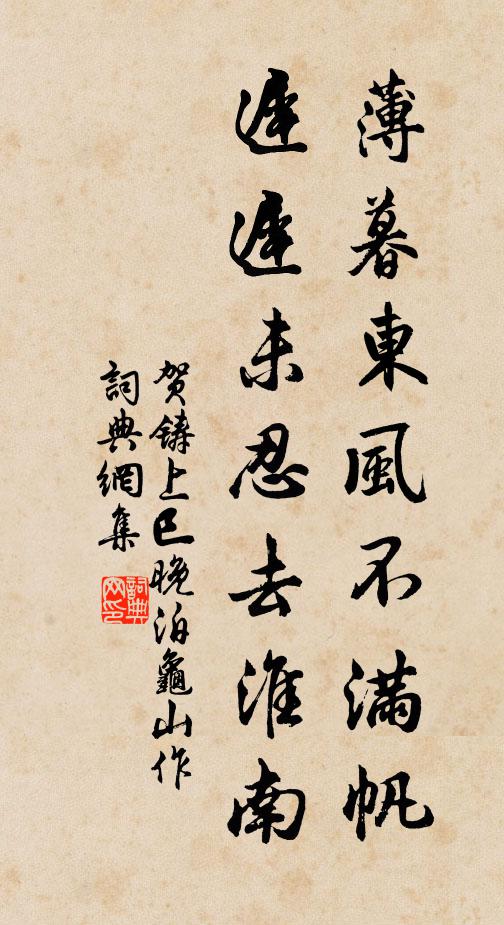 薄暮東風不滿帆
遲遲未忍去淮南
賀鑄上巳晚泊龜山作
詞典網集
詞典网印